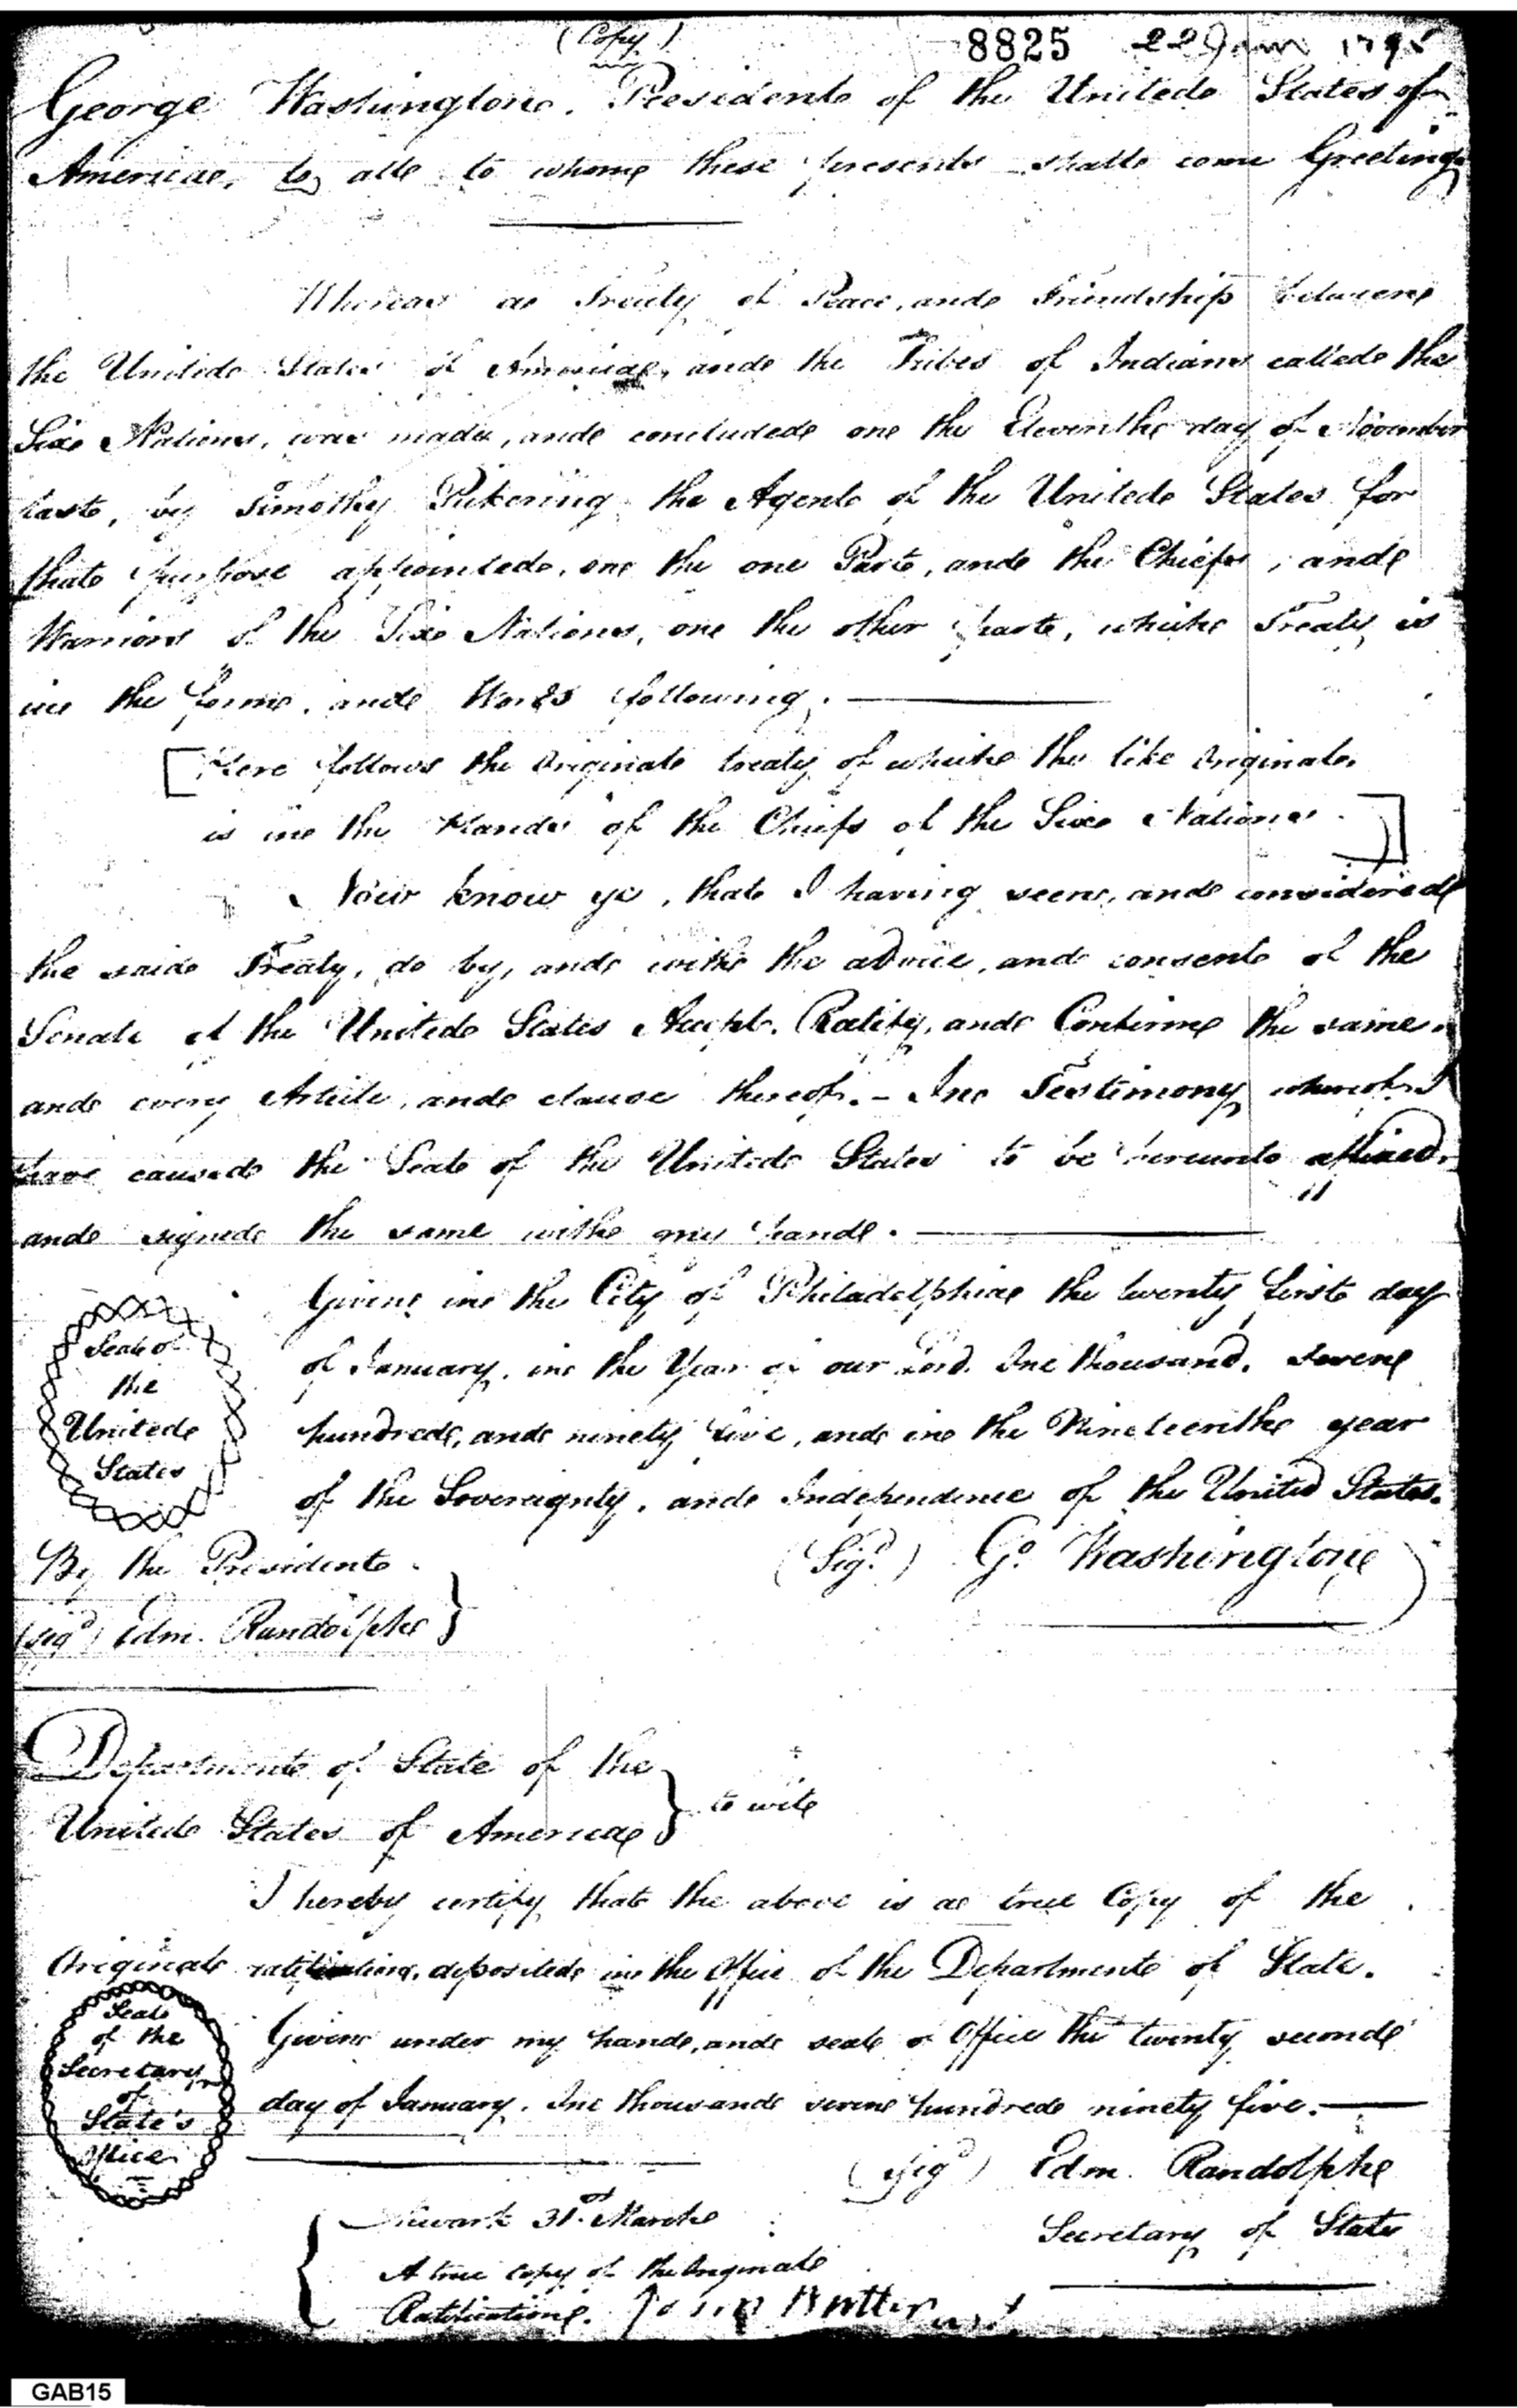 (Copy)
8825 22 Jan 1795
George Washington, President of the United States of
America, to all to whom these presents shall come Greeting
Whereas a Treaty of Peace, and Friendship between
the United States of America, and the Tribes of Indians called the
Six Nations, was made, and concluded on the Eleventh day of November
last, by Timothy Pickering the Agent of the United States for
that purpose appointed, on the one Part, and the Chiefs, and
Warriors of the Six Nations, on the other part, which Treaty is
in the form, and Words following.
[Here follows the Original treaty of which the like Original
is in the Hands of the Chiefs of the Six Nations.]
Now know ye, that I having seen, and considered
the said Treaty, do by, and with the advice, and consent of the
Senate of the United States Accept, Ratify, and Confirm the same,
and every Article, and clause thereof. - In Testimony whereof I
have caused the Seal of the United States to be hereunto affixed,
and signed the same with my hand.
Given in the City of Philadelphia the twenty first day
of January, in the Year of our Lord One thousand, seven
hundred, and ninety five, and in the Nineteenth year
of the Sovereignty, and Independence of the United States.
Seal of
the
United
States
By the President
(Sigd) Go Washington
(sigd) Edm. Randolph }
Department of State of the
United States of America } to wit
I hereby certify that the above is a true Copy of the
Original ratification, deposited in the Office of the Department of State.
Given under my hand, and seal of Office the twenty second
day of January, One thousand seven hundred ninety five.
Seal
of the
Secretary
of
State's
Office
(sigd) Edm. Randolph
Secretary of State
Newark 31st March
A true copy of the Original
Ratification.
GAB15